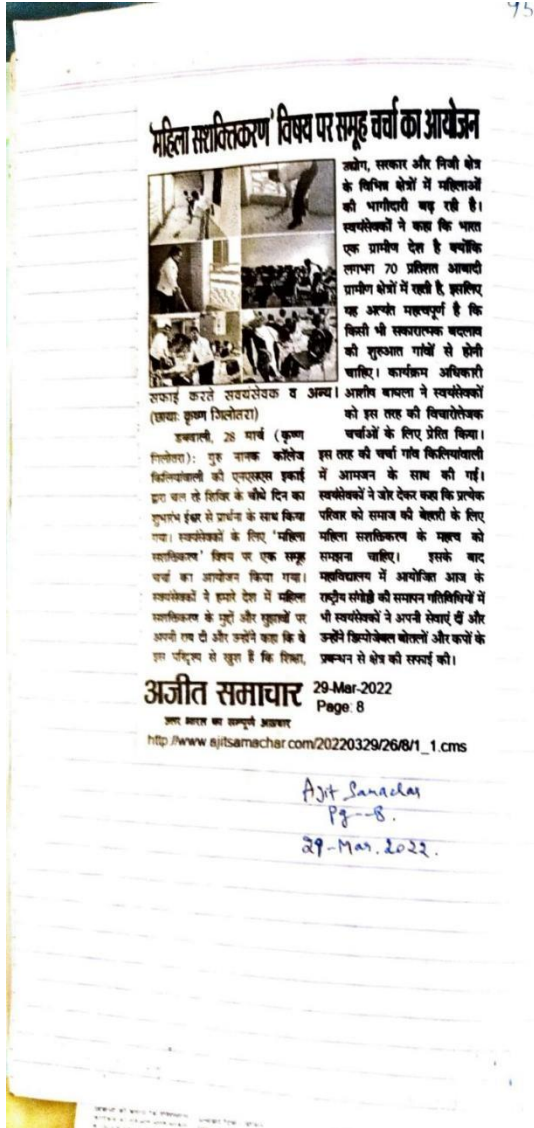 95
'महिला सशक्तिकरण' विषय पर समूह चर्चा का आयोजन
सफाई करते सवयंसेवक व अन्य।
(छायाः कृष्ण गिलोतरा)
डबवाली, 28 मार्च (कृष्ण
गिलोतरा): गुरु नानक कॉलेज
किलियांवाली की एनएसएस इकाई
द्वारा चल रहे शिविर के चौथे दिन का
शुभारंभ ईश्वर से प्रार्थना के साथ किया
गया। स्वयंसेवकों के लिए 'महिला
सशक्तिकरण' विषय पर एक समूह
चर्चा का आयोजन किया गया।
स्वयंसेवकों ने हमारे देश में महिला
सशक्तिकरण के मुद्दों और सुझावों पर
अपनी राय दी और उन्होंने कहा कि वे
इस परिदृश्य से खुश हैं कि शिक्षा,
उद्योग, सरकार और निजी क्षेत्र
के विभिन्न क्षेत्रों में महिलाओं
की भागीदारी बढ़ रही है।
स्वयंसेवकों ने कहा कि भारत
एक ग्रामीण देश है क्योंकि
लगभग 70 प्रतिशत आबादी
ग्रामीण क्षेत्रों में रहती है, इसलिए
यह अत्यंत महत्वपूर्ण है कि
किसी भी सकारात्मक बदलाव
की शुरुआत गांवों से होनी
चाहिए। कार्यक्रम अधिकारी
आशीष बाघला ने स्वयंसेवकों
को इस तरह की विचारोत्तेजक
चर्चाओं के लिए प्रेरित किया।
इस तरह की चर्चा गांव किलियांवाली
में आमजन के साथ की गई।
स्वयंसेवकों ने जोर देकर कहा कि प्रत्येक
परिवार को समाज की बेहतरी के लिए
महिला सशक्तिकरण के महत्व को
समझना चाहिए। इसके बाद
महाविद्यालय में आयोजित आज के
राष्ट्रीय संगोष्ठी की समापन गतिविधियों में
भी स्वयंसेवकों ने अपनी सेवाएं दीं और
उन्होंने डिस्पोजेबल बोतलों और कपों के
प्रबन्धन से क्षेत्र की सफाई की।
अजीत समाचार
उत्तर भारत का सम्पूर्ण अखबार
29-Mar-2022
Page: 8
http://www.ajitsamachar.com/20220329/26/8/1_1.cms
Ajit Samachar
Pg--8.
29-Mar.2022.